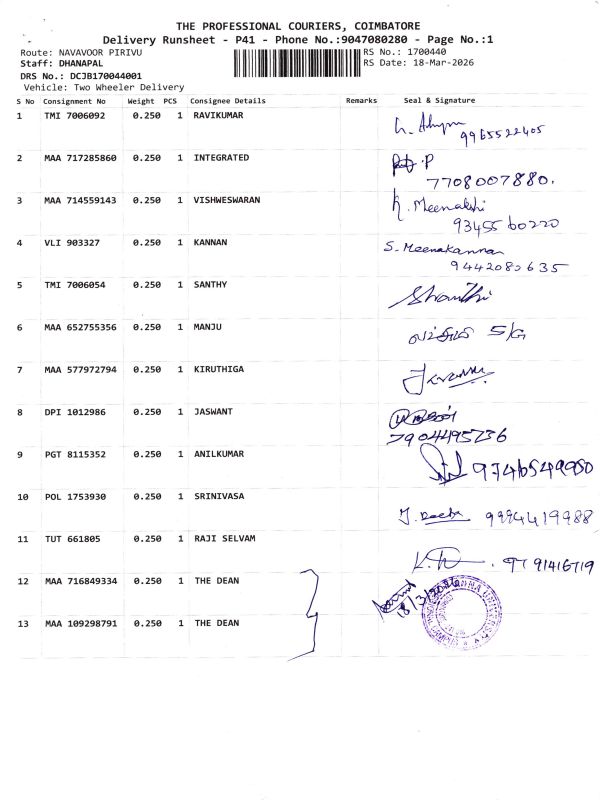 THE PROFESSIONAL COURIERS, COIMBATORE
Delivery Runsheet - P41 - Phone No.:9047080280 - Page No.:1
Route: NAVAVOOR PIRIVU RS No.: 1700440
Staff: DHANAPAL RS Date: 18-Mar-2026
DRS No.: DCJB170044001
Vehicle: Two Wheeler Delivery
S No Consignment No Weight PCS Consignee Details Remarks Seal & Signature
1 TMI 7006092 0.250 1 RAVIKUMAR
9965522405
2 MAA 717285860 0.250 1 INTEGRATED
P
7708007880.
3 MAA 714559143 0.250 1 VISHWESWARAN K. Meenakshi
9345560220
4 VLI 903327 0.250 1 KANNAN S. Meenakannan
9442080635
5 TMI 7006054 0.250 1 SANTHY Shanthi
6 MAA 652755356 0.250 1 MANJU S/G
7 MAA 577972794 0.250 1 KIRUTHIGA
8 DPI 1012986 0.250 1 JASWANT
7904495236
9 PGT 8115352 0.250 1 ANILKUMAR 9746549980
10 POL 1753930 0.250 1 SRINIVASA 9994419988
11 TUT 661805 0.250 1 RAJI SELVAM
K. 9791416719
12 MAA 716849334 0.250 1 THE DEAN
18/3/2026
13 MAA 109298791 0.250 1 THE DEAN